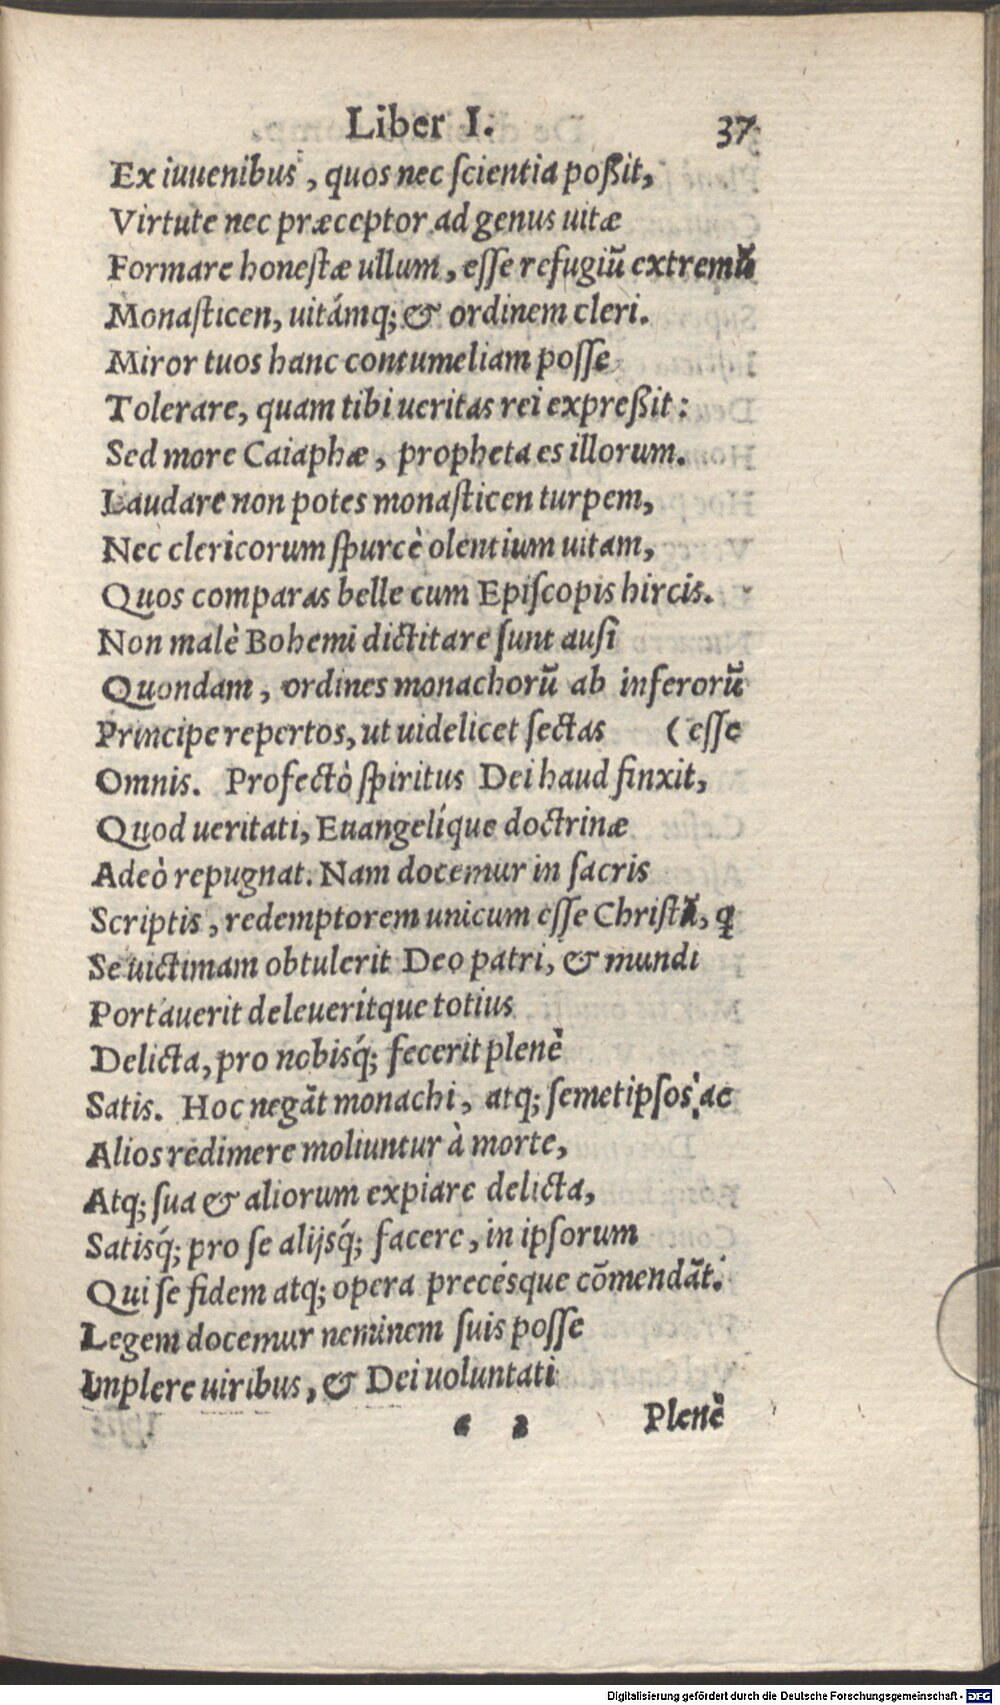 Liber I. 37
Ex iuuenibus, quos nec ſcientia poßit,
Virtute nec præceptor ad genus uitæ
Formare honeſtæ ullum, eſſe refugiũ extremũ
Monaſticen, uitámq; & ordinem cleri.
Miror tuos hanc contumeliam poſſe
Tolerare, quam tibi ueritas rei expreßit:
Sed more Caiaphæ, propheta es illorum.
Laudare non potes monaſticen turpem,
Nec clericorum ſpurcè olentium uitam,
Quos comparas belle cum Epiſcopis hircis.
Non malè Bohemi dictitare ſunt auſi
Quondam, ordines monachorũ ab inferorũ
Principe repertos, ut uidelicet ſectas (eſſe
Omnis. Profectò ſpiritus Dei haud finxit,
Quod ueritati, Euangelíque doctrinæ
Adeò repugnat. Nam docemur in ſacris
Scriptis, redemptorem unicum eſſe Chriſtũ, ꝗ
Se uictimam obtulerit Deo patri, & mundi
Portauerit deleueritque totius
Delicta, pro nobisq́; fecerit plenè
Satis. Hoc negãt monachi, atq; ſemetipſos ac
Alios redimere moliuntur à morte,
Atq; ſua & aliorum expiare delicta,
Satisq́; pro ſe alijsq́; facere, in ipſorum
Qui ſe fidem atq; opera precésque cõmendãt.
Legem docemur neminem ſuis poſſe
Implere uiribus, & Dei uoluntati
e 2 Plenè
Digitalisierung gefördert durch die Deutsche Forschungsgemeinschaft - DFG